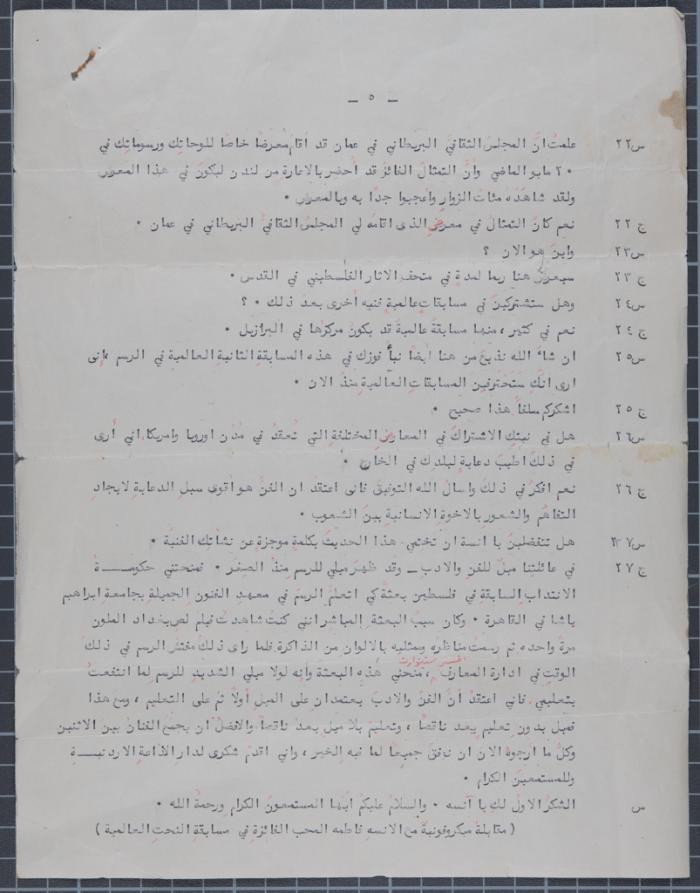 — ٥ —
س٢٢ علمت ان المجلس الثقافي البريطاني في عمان قد اقام معرضا خاصا للوحاتك ورسوماتك في
٢٠ مايو الماضي وان التمثال الفائز قد احضر بالاعارة من لندن ليكون في هذا المعرض
ولقد شاهده مئات الزوار واعجبوا جدا به وبالمعرض ٠
ج ٢٢ نعم كان التمثال في معرض الذى اقامه لي المجلس الثقافي البريطاني في عمان ٠
س٢٣ واين هو الان ؟
ج ٢٣ سيعرض هنا ربما لمدة في متحف الاثار الفلسطيني في القدس ٠
س٢٤ وهل ستشتركين في مسابقات عالمية فنيه أخرى بعد ذلك ٠ ؟
ج ٢٤ نعم في كثير ، منها مسابقة عالمية قد يكون مركزها في البرازيل ٠
س٢٥ ان شاء الله نذيع من هنا ايضا نبأ فوزك في هذه المسابقة الثانية العالمية في الرسم ، انى
ارى انك ستحترفين المسابقات العالمية منذ الان ٠
ج ٢٥ اشكركم سلفا هذا صحيح ٠
س٢٦ هل في نيتك الاشتراك في المعارض المختلفة التي تعقد في مدن اوروبا وامريكا انى أرى
في ذلك اطيب دعاية لبلدك في الخارج ٠
ج ٢٦ نعم افكر في ذلك واسأل الله التوفيق فانى اعتقد ان الفن هو اقوى سبل الدعاية لايجاد
التفاهم والشعور بالاخوة الانسانية بين الشعوب ٠
س٢٧ هل تتفضلين يا انسة ان تختمي هذا الحديث بكلمة موجزة عن نشأتك الفنية ٠
ج ٢٧ في عائلتنا ميل للفن والادب — وقد ظهر ميلي للرسم منذ الصغر ٠ فمنحتني حكومـــة
الانتداب السابقة في فلسطين بعثة كي اتعلم الرسم في معهد الفنون الجميلة بجامعة ابراهيم
باشا في القاهرة ٠ وكان سبب البعثة المباشر انني كنت شاهدت فيلم لص بغداد الملون
مرة واحده ثم رسمت مناظره وممثليه بالالوان من الذاكرة فلما راى ذلك مفتش الرسم في ذلك
المستر ستيوارت
الوقت في ادارة المعارف ، منحني هذه البعثة وانه لولا ميلي الشديد للرسم لما انتفعت
بتعليمي فاني اعتقد ان الفن والادب يعتمدان على الميل أولا ثم على التعليم ، ومع هذا
فميل بدون تعليم يعد ناقصا ، وتعليم بلا ميل يعد ناقصا والافضل ان يجمع الفنان بين الاثنين
وكل ما ارجوه الان ان نوفق جميعا لما فيه الخير ، واني اقدم شكرى لدار الاذاعة الاردنيـــة
وللمستمعين الكرام ٠
س الشكر الاول لك يا آنسه ٠ والسلام عليكم ايها المستمعون الكرام ورحمة الله ٠
( مقابلة ميكروفونية مع الانسه فاطمه المحب الفائزة في مسابقة النحت العالمية )